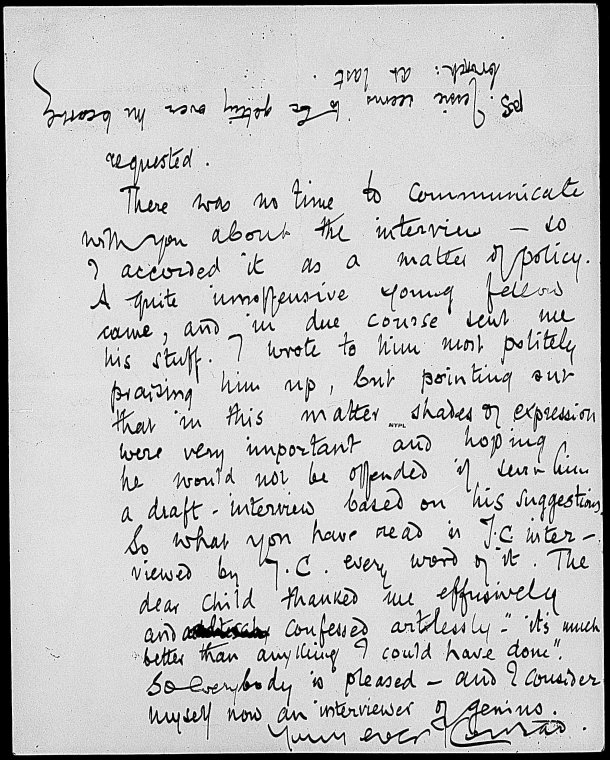 requested.
There was no time to communicate
with you about the interview – so
I accorded it as a matter of policy.
A quite inoffensive young fellow
came, and in due course sent me
his stuff. I wrote to him most politely
praising him up, but pointing out
that in this matter shades of expression
NYPL
were very important and hoping
he would not be offended if I sent him
a draft-interview based on his suggestions.
So what you have read is J.C inter–
viewed by J.C. every word of it. The
dear child thanked me effusively
and confessed artlessly – "it's much
better than anything I could have done".
So everybody is pleased – and I consider
myself now an interviewer of genius.
Yours ever Conrad.
PS. Jessie seems to be getting over the beastly
bronch: at last.